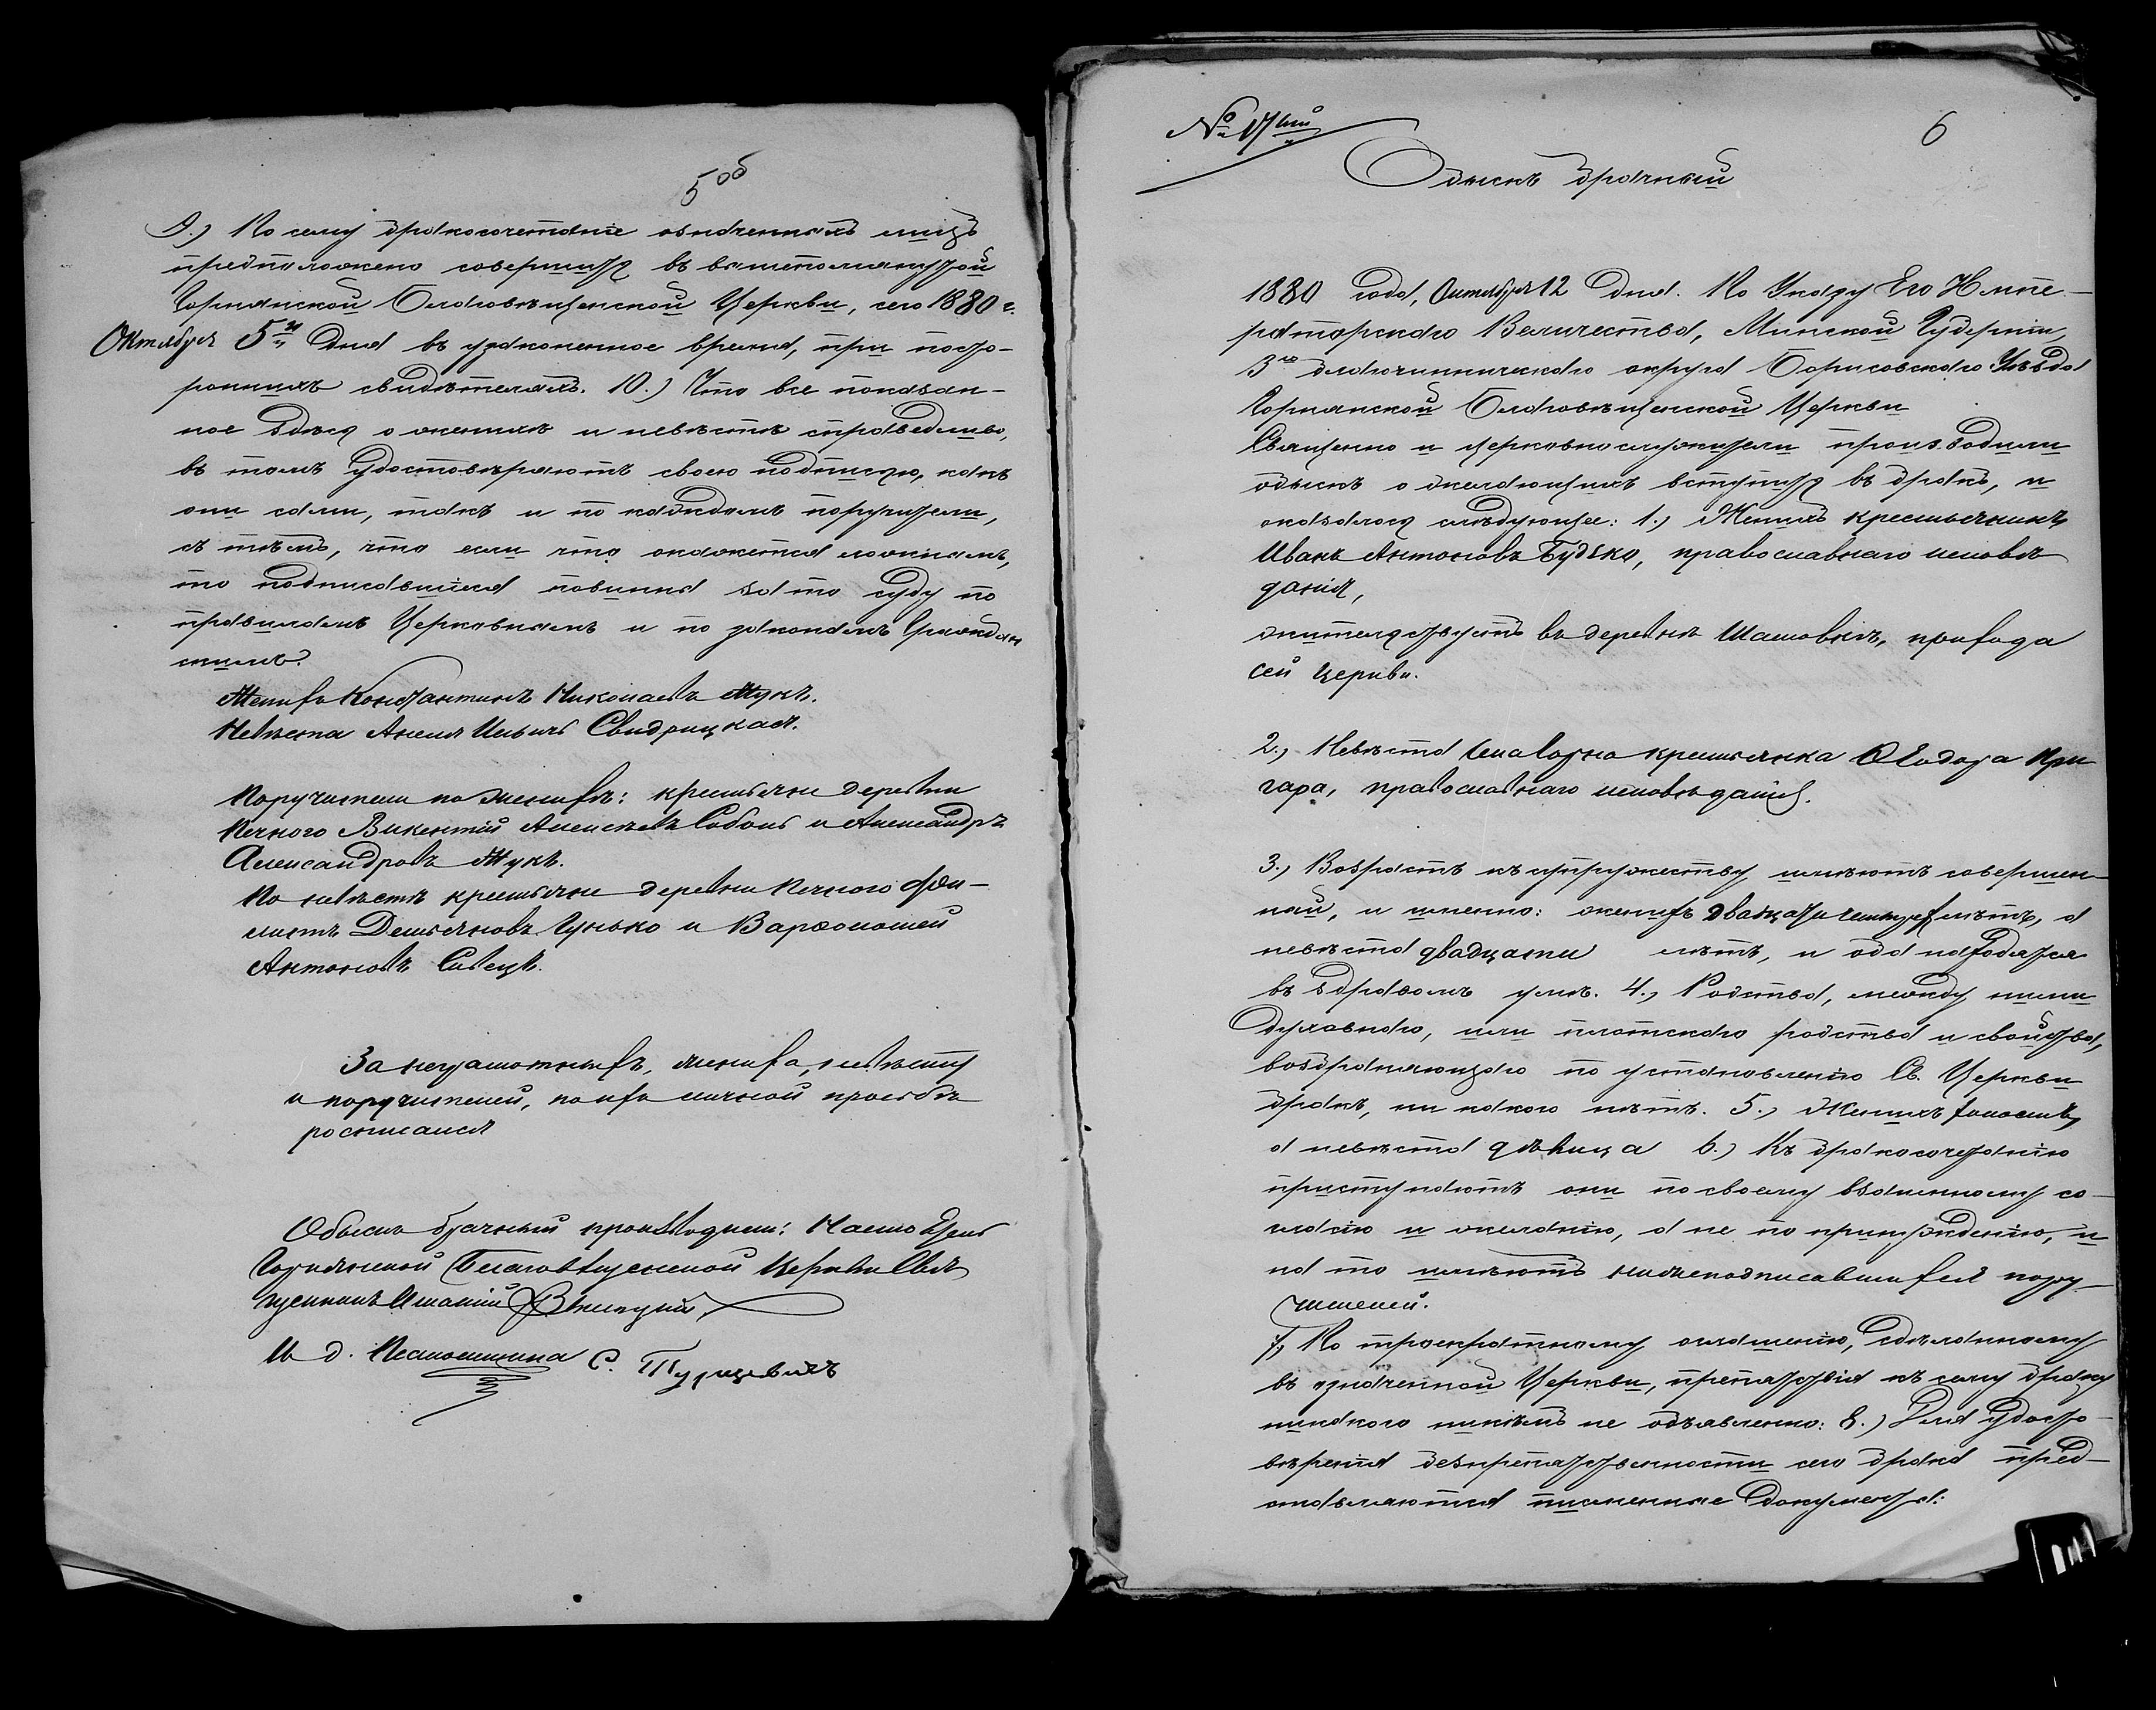 5 об
9.) По сему бракосочетаніе означенныхъ лицъ
предположено совершить въ вышепомянутой
Горнянской Благовѣщенской Церкви, сего 1880 г.
Октября 5го дня въ узаконенное время, при посто-
роннихъ свидѣтеляхъ. 10.) Что все показан-
ное здѣсь о женихѣ и невѣстѣ справедливо,
въ томъ удостовѣряютъ своею подписью, какъ
они сами, такъ и по каждомъ поручители,
съ тѣмъ, что если что окажется ложнымъ,
то подписавшіеся повинны за то суду по
правиламъ Церковнымъ и по законамъ Граждан
скимъ.
Женихъ Константинъ Николаевъ Жукъ.
Невѣста Анна Ильина Свидрицкая.
Поручители по женихѣ: крестьяне деревни
Викентій Алексѣевъ и Александръ
Александровъ Жукъ.
По невѣстѣ крестьяне деревни
Демьяновъ Гунько и Варѳоломей
Антоновъ Сивецъ.
За неграмотныхъ, жениха, невѣсту
и поручителей, по ихъ личной просьбѣ
росписался
Обыскъ брачный производили: Настоятель
Горнянской Благовѣщенской Церкви Свя
щенникъ
И д. Псаломщика С. Турцевичъ
№ 17ый
6
Обыскъ брачный
1880 года, Октября 12 дня. По Указу Его Импе-
раторскаго Величества, Минской Губерніи,
3го благочинническаго округа Борисовскаго Уѣзда
Горнянской Благовѣщенской Церкви
Священно и церковнослужители производили
обыскъ о желающихъ вступить въ бракъ, и
оказалось слѣдующее: 1.) Женихъ крестьянинъ
Иванъ Антоновъ Будько, православнаго исповѣ
данія,
жительствуетъ въ деревнѣ прихода
сей церкви.
2., Невѣста крестьянка Ѳеодора При
гара, православнаго исповѣданія.
3., Возрастъ къ супружеству имѣютъ совершен-
ный, и именно: женихъ двадцати четырехъ лѣтъ, а
невѣста двадцати лѣтъ, и оба находятся
въ здравомъ умѣ. 4., Родства, между ними
духовнаго, или плотскаго родства и свойства,
возбраняющаго по установленію Св. Церкви
бракъ, ни какого нѣтъ. 5., Женихъ холостъ,
а невѣста дѣвица 6.) Къ бракосочетанію
приступаютъ они по своему взаимному со-
гласію и желанію, а не по принужденію, и
на то имѣютъ нижеподписавшихся пору-
чителей.
7, По троекратному оглашенію, сдѣланному
въ означенной Церкви, препятствія къ сему браку
никакого никѣмъ не объявлено: 8.) Для удосто-
вѣренія безпрепятственности сего брака пред-
ставляются письменные документы: